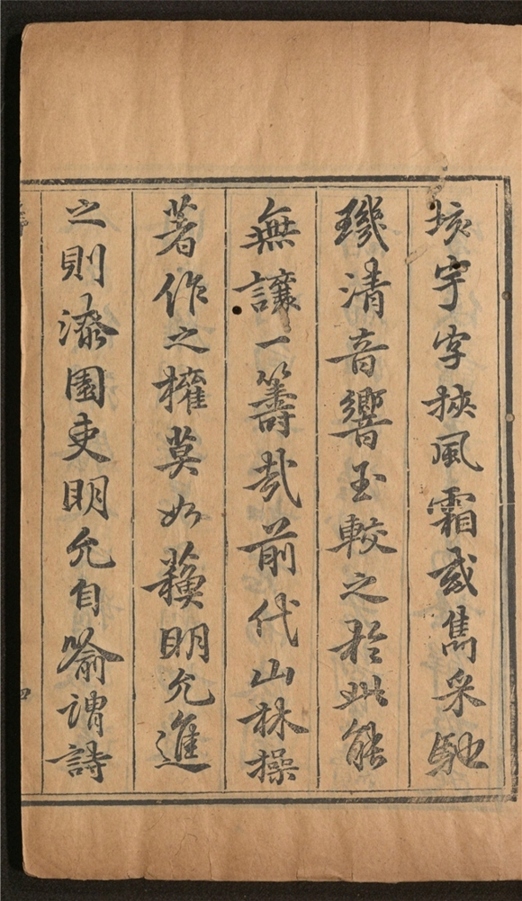 垓宇字挾風霜或雋采馳
璣清音響玉較之於此能
無讓一籌哉前代山林操
著作之權莫如蘓明允進
之則漆園吏明允自喻謂詩